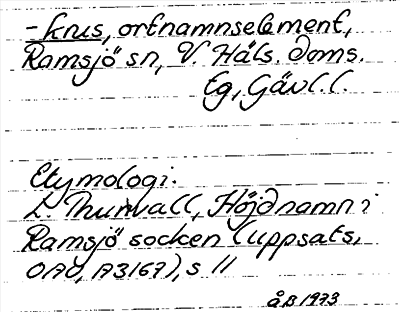 -krus, ortnamnselement,
Ramsjö sn, V. Häls. doms.
Eg, Gävl.l.
Etymologi.
L. Thunvall, Höjdnamn i
Ramsjö socken (uppsats,
OAU, A3167), s 11
åB 1973